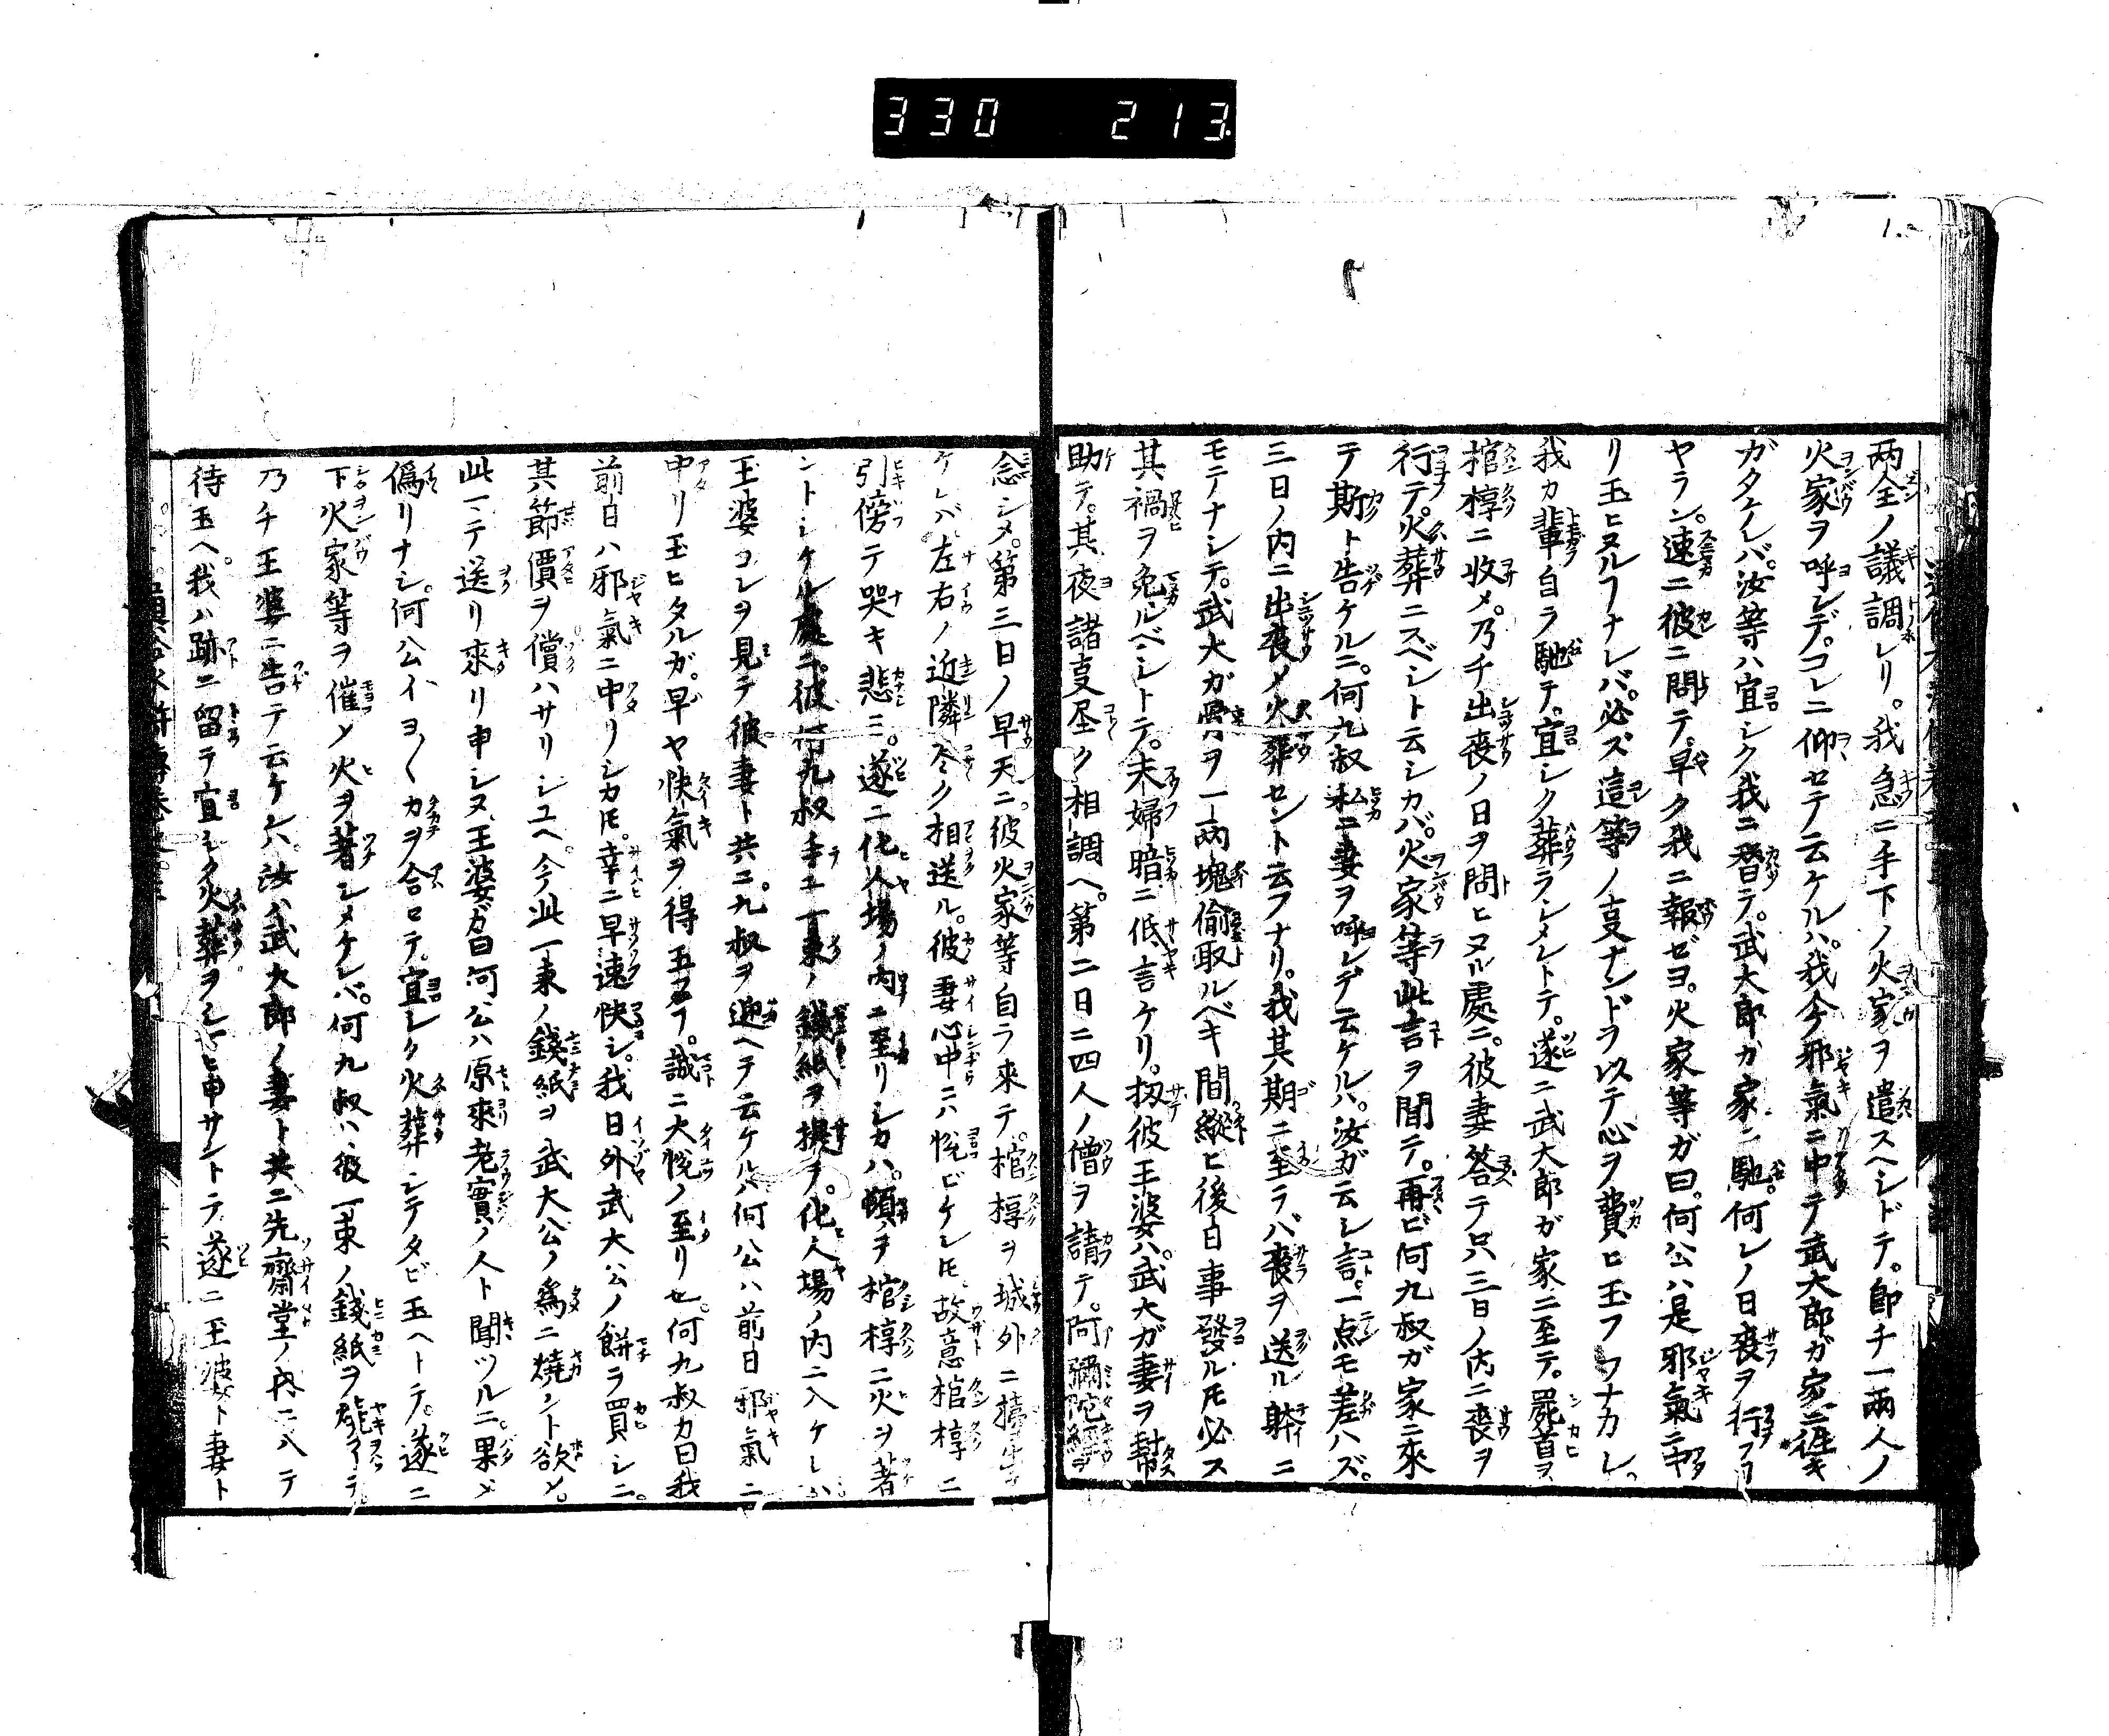 330 213
両全ノ議調レリ。我急ニ手下ノ火家ヲ遣スヘシトテ。即チ一両人ノ
火家ヲ呼ンデ。コレニ仰セテ云ケルハ。我今邪氣ニ中テ武大郎ガ家ニ往キ
ガタケレバ。汝等ハ宜シク我ニ替テ。武大郎ガ家ニ馳。何レノ日喪ヲ行フヿ
ヤラン。速ニ彼ニ問テ。早ク我ニ報ゼヨ。火家等ガ曰。何公ハ是邪氣ニ中
リ玉ヒヌルヿナレバ。必ズ這等ノ叓ナンドヲ以テ心ヲ費ヒ玉フヿナカレ。
我カ輩自ラ馳テ。宜シク葬ラシメントテ。遂ニ武大郎ガ家ニ至テ。屍首ヲ
棺椁ニ收メ。乃チ出喪ノ日ヲ問ヒヌル處ニ。彼妻答テ只三日ノ内ニ喪ヲ
行テ。火葬ニスベシト云シカバ。火家等此言ヲ聞テ。再ビ何九叔ガ家ニ來
テ斯ト告ケルニ。何九叔私ニ妻ヲ呼ンデ云ケルハ。汝ガ云シ言。一点モ差ハズ。
三日ノ内ニ出喪メ火葬セント云フナリ。我其期ニ至ラバ喪ヲ送ル躰ニ
モテナシテ。武大ガ骨ヲ一両塊偷取ルベキ間。縦ヒ後日事發ルモ必ス
其禍ヲ免ルベシトテ。夫婦暗ニ低言ケリ。扨彼王婆ハ。武大ガ妻ヲ幇
助テ。其夜諸叓尽ク相調ヘ。第二日ニ四人ノ僧ヲ請テ。阿彌陀經ヲ
念シメ。第三日ノ早天ニ。彼火家等自ラ来テ。棺椁ヲ城外ニ擡出
ケレバ。左右ノ近隣尽ク相送ル。彼妻心中ニハ悦ビケレ𪜈。故意棺椁ニ
引傍テ哭キ悲ミ。遂ニ化人場ノ内ニ至リシカハ。頓ヲ棺椁ニ火ヲ著
ントシケル處ニ。彼何九叔手ニ一束ノ錢紙ヲ提テ。化人場ノ内ニ入ケレハ
王婆コレヲ見テ彼妻ト共ニ。九叔ヲ迎ヘテ云ケルハ何公ハ前日邪氣ニ
中リ玉ヒタルガ。早ヤ快氣ヲ得玉フ。誠ニ大悦ノ至リセ。何九叔カ曰我
前日ハ邪氣ニ中リシカ𪜈。幸ニ早速快シ。我日外武大公ノ餅ヲ買シニ。
其節價ヲ償ハサリシユヘ。今此一束ノ錢紙ヲ武大公ノ爲ニ燒ント欲メ。
此ニテ送リ來リ申シヌ。王婆ガ曰何公ハ原來老實ノ人ト聞ツルニ。果メ
僞リナシ。何公イヨ〱カヲ合セテ。宜シク火葬シテタビ玉ヘトテ。遂ニ
下火家等ヲ催メ火ヲ著シメケレバ。何九叔ハ彼一束ノ錢紙ヲ テ。
乃チ王婆ニ告テ云ケレハ。汝ハ武大郎ノ妻ト共ニ先齋堂ノ内ニ入テ
待玉ヘ。我ハ跡ニ留テ宜シク火葬ヲシマヒ申サントテ。遂ニ王婆ト妻ト